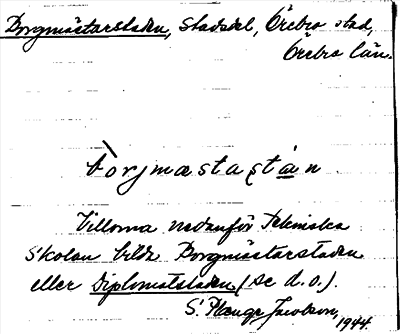 Borgmästarstaden, stadsdel, Örebro stad,
Örebro län.
bòrjmæstastán
Villorna nedanför Tekniska
Skolan bilda Borgmästarstaden
eller Diplomatstaden (se d.o.).
S. Jacobson, 1944.